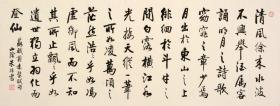 清風徐來水波
不興舉酒屬客
誦明月之詩歌
窈窕之章少焉
月出於東山之上
徘徊於斗牛之
間白露橫江水
光接天縱一葦
之所如凌萬頃之
茫然浩浩乎如馮
虛御風而不知其
所止飄飄乎如
遺世獨立羽化而
登仙